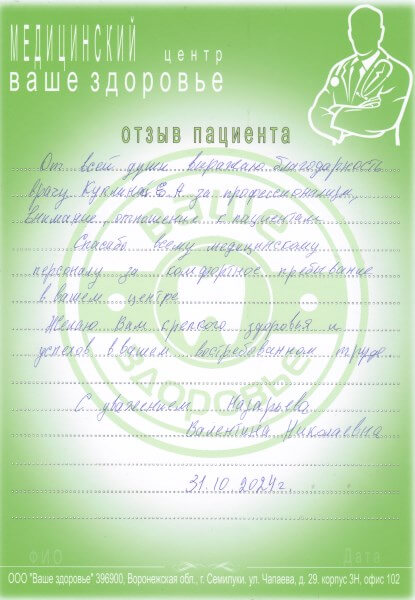 МЕДИЦИНСКИЙ центр
ваше здоровье
отзыв пациента
От всей души выражаю благодарность
врачу Куклиной Е.А за профессионализм,
внимание, отношения к пациентам.
Спасибо всему медицинскому
персоналу за комфортное пребывание
в вашем центре
Желаю Вам крепкого здоровья и
успехов в вашем востребованном труде.
ЗДОРОВЬЕ
С уважением Назарьева
Валентина Николаевна
31.10.2024г.
ФИО Дата
ООО "Ваше здоровье" 396900, Воронежская обл., г. Семилуки. ул. Чапаева, д. 29. корпус 3Н, офис 102